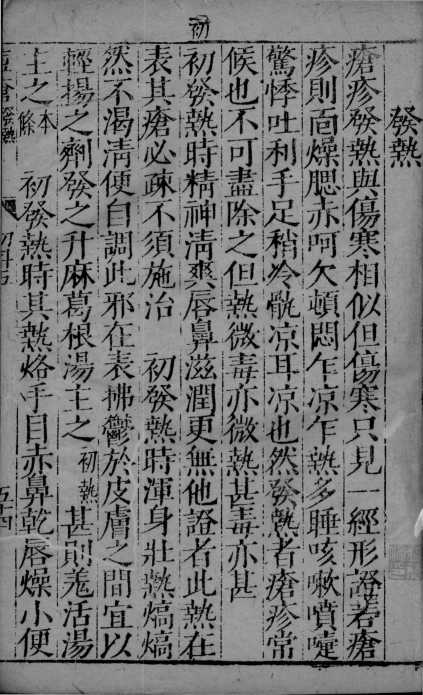 初
發熱
瘡疹發熱與傷寒相似但傷寒只見一經形證若瘡
疹則面燥腮赤呵欠頓悶乍凉乍熱多睡咳嗽噴嚏
驚悸吐利手足稍冷骩凉耳凉也然發熱者瘡疹常
候也不可盡除之但熱微毒亦微熱甚毒亦甚
初發熱時精神清爽唇鼻滋潤更無他證者此熱在
表其瘡必疎不須施治　初發熱時渾身壯熱熇熇
然不渴清便自調此邪在表拂鬱於皮膚之間宜以
輕揚之劑發之升麻葛根湯主之初熱甚則羗活湯
主之本條　初發熱時其熱烙手目赤鼻乾唇燥小便
痘瘡發熱　五十四